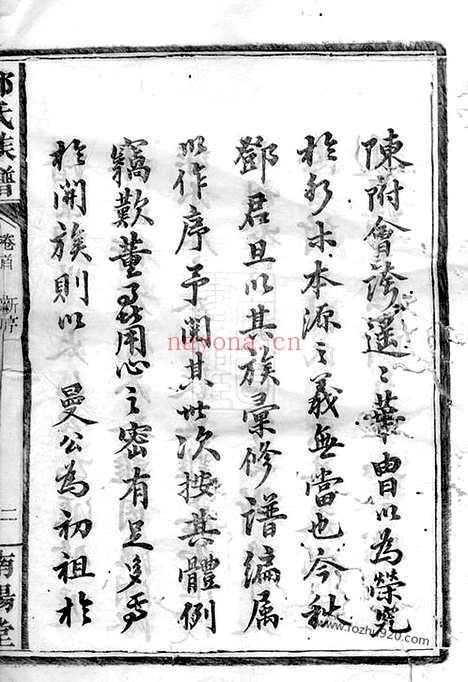 陳附會誇遙〻華曹以為榮究
於水木本源之義無當也今秋
鄧君旦以其族彙修譜編属
以作序予閲其世次按其體例
竊歎董用心之密有足多焉
於開族則以 曼公為初祖於
鄧氏族譜
卷首 新序
二
南陽堂
nayona.cn
www.fozhu920.com